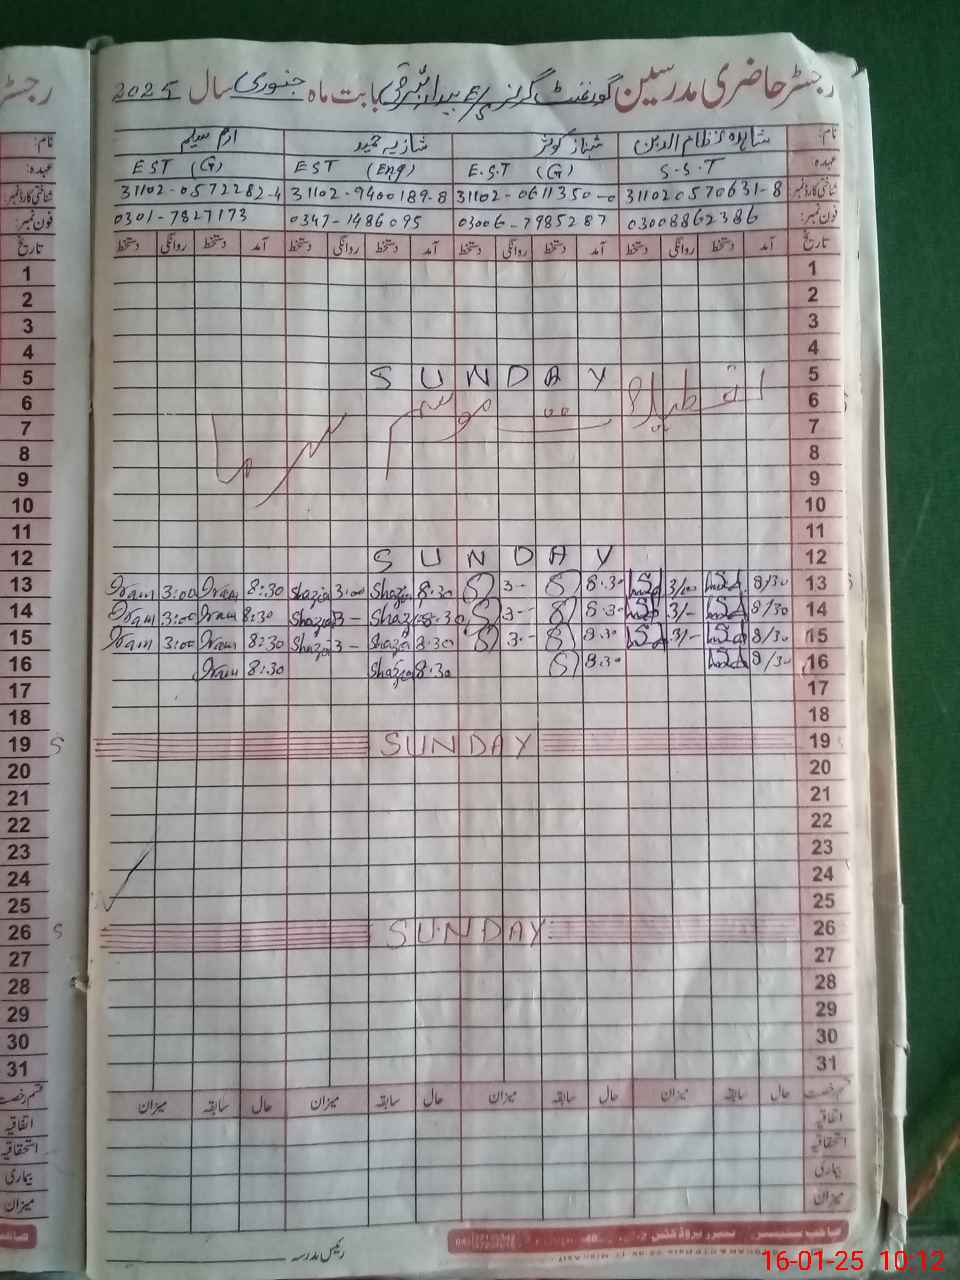 رجسٹر حاضری مدرسین گورنمنٹ گرلز بابت ماہ جنوری سال 2025
نام: شاہدہ نظام الدین شہناز کوثر شازیہ حمید ارم سلیم
عہدہ: S.S.T E.S.T (G) EST (Eng) EST (G)
شناختی کارڈ نمبر: 311020570631-8 31102-0611350-0 31102-9400189-8 31102-0572282-4
فون نمبر: 03008862386 03006-7985287 0347-1486095 0301-7827173
تاریخ آمد دستخط روانگی دستخط آمد دستخط روانگی دستخط آمد دستخط روانگی دستخط آمد دستخط روانگی دستخط
1
2
3
4
5 SUNDAY
6
7 تعطیلات موسم سرما
8
9
10
11
12 SUNDAY
13 8/30 3/00 8.30 3-- 8.30 Shazia 3:00 Shazia 8:30 Iram 3:00 Iram
14 8/30 3/- 8.30 3-- 8.30 Shazia 3- Shazia 8:30 Iram 3:00 Iram
15 8/30 3/- 8.30 3.- 8.30 Shazia 3- Shazia 8:30 Iram 3:00 Iram
16 8/30 8.30 8.30 Shazia 8:30 Iram
17
18
19 SUNDAY
20
21
22
23
24
25
26 SUNDAY
27
28
29
30
31
قسم رخصت حال سابقہ میزان حال سابقہ میزان حال سابقہ میزان حال سابقہ میزان
اتفاقیہ
استحقاقیہ
بیماری
میزان
رئیس مدرسہ
16-01-25 10:12